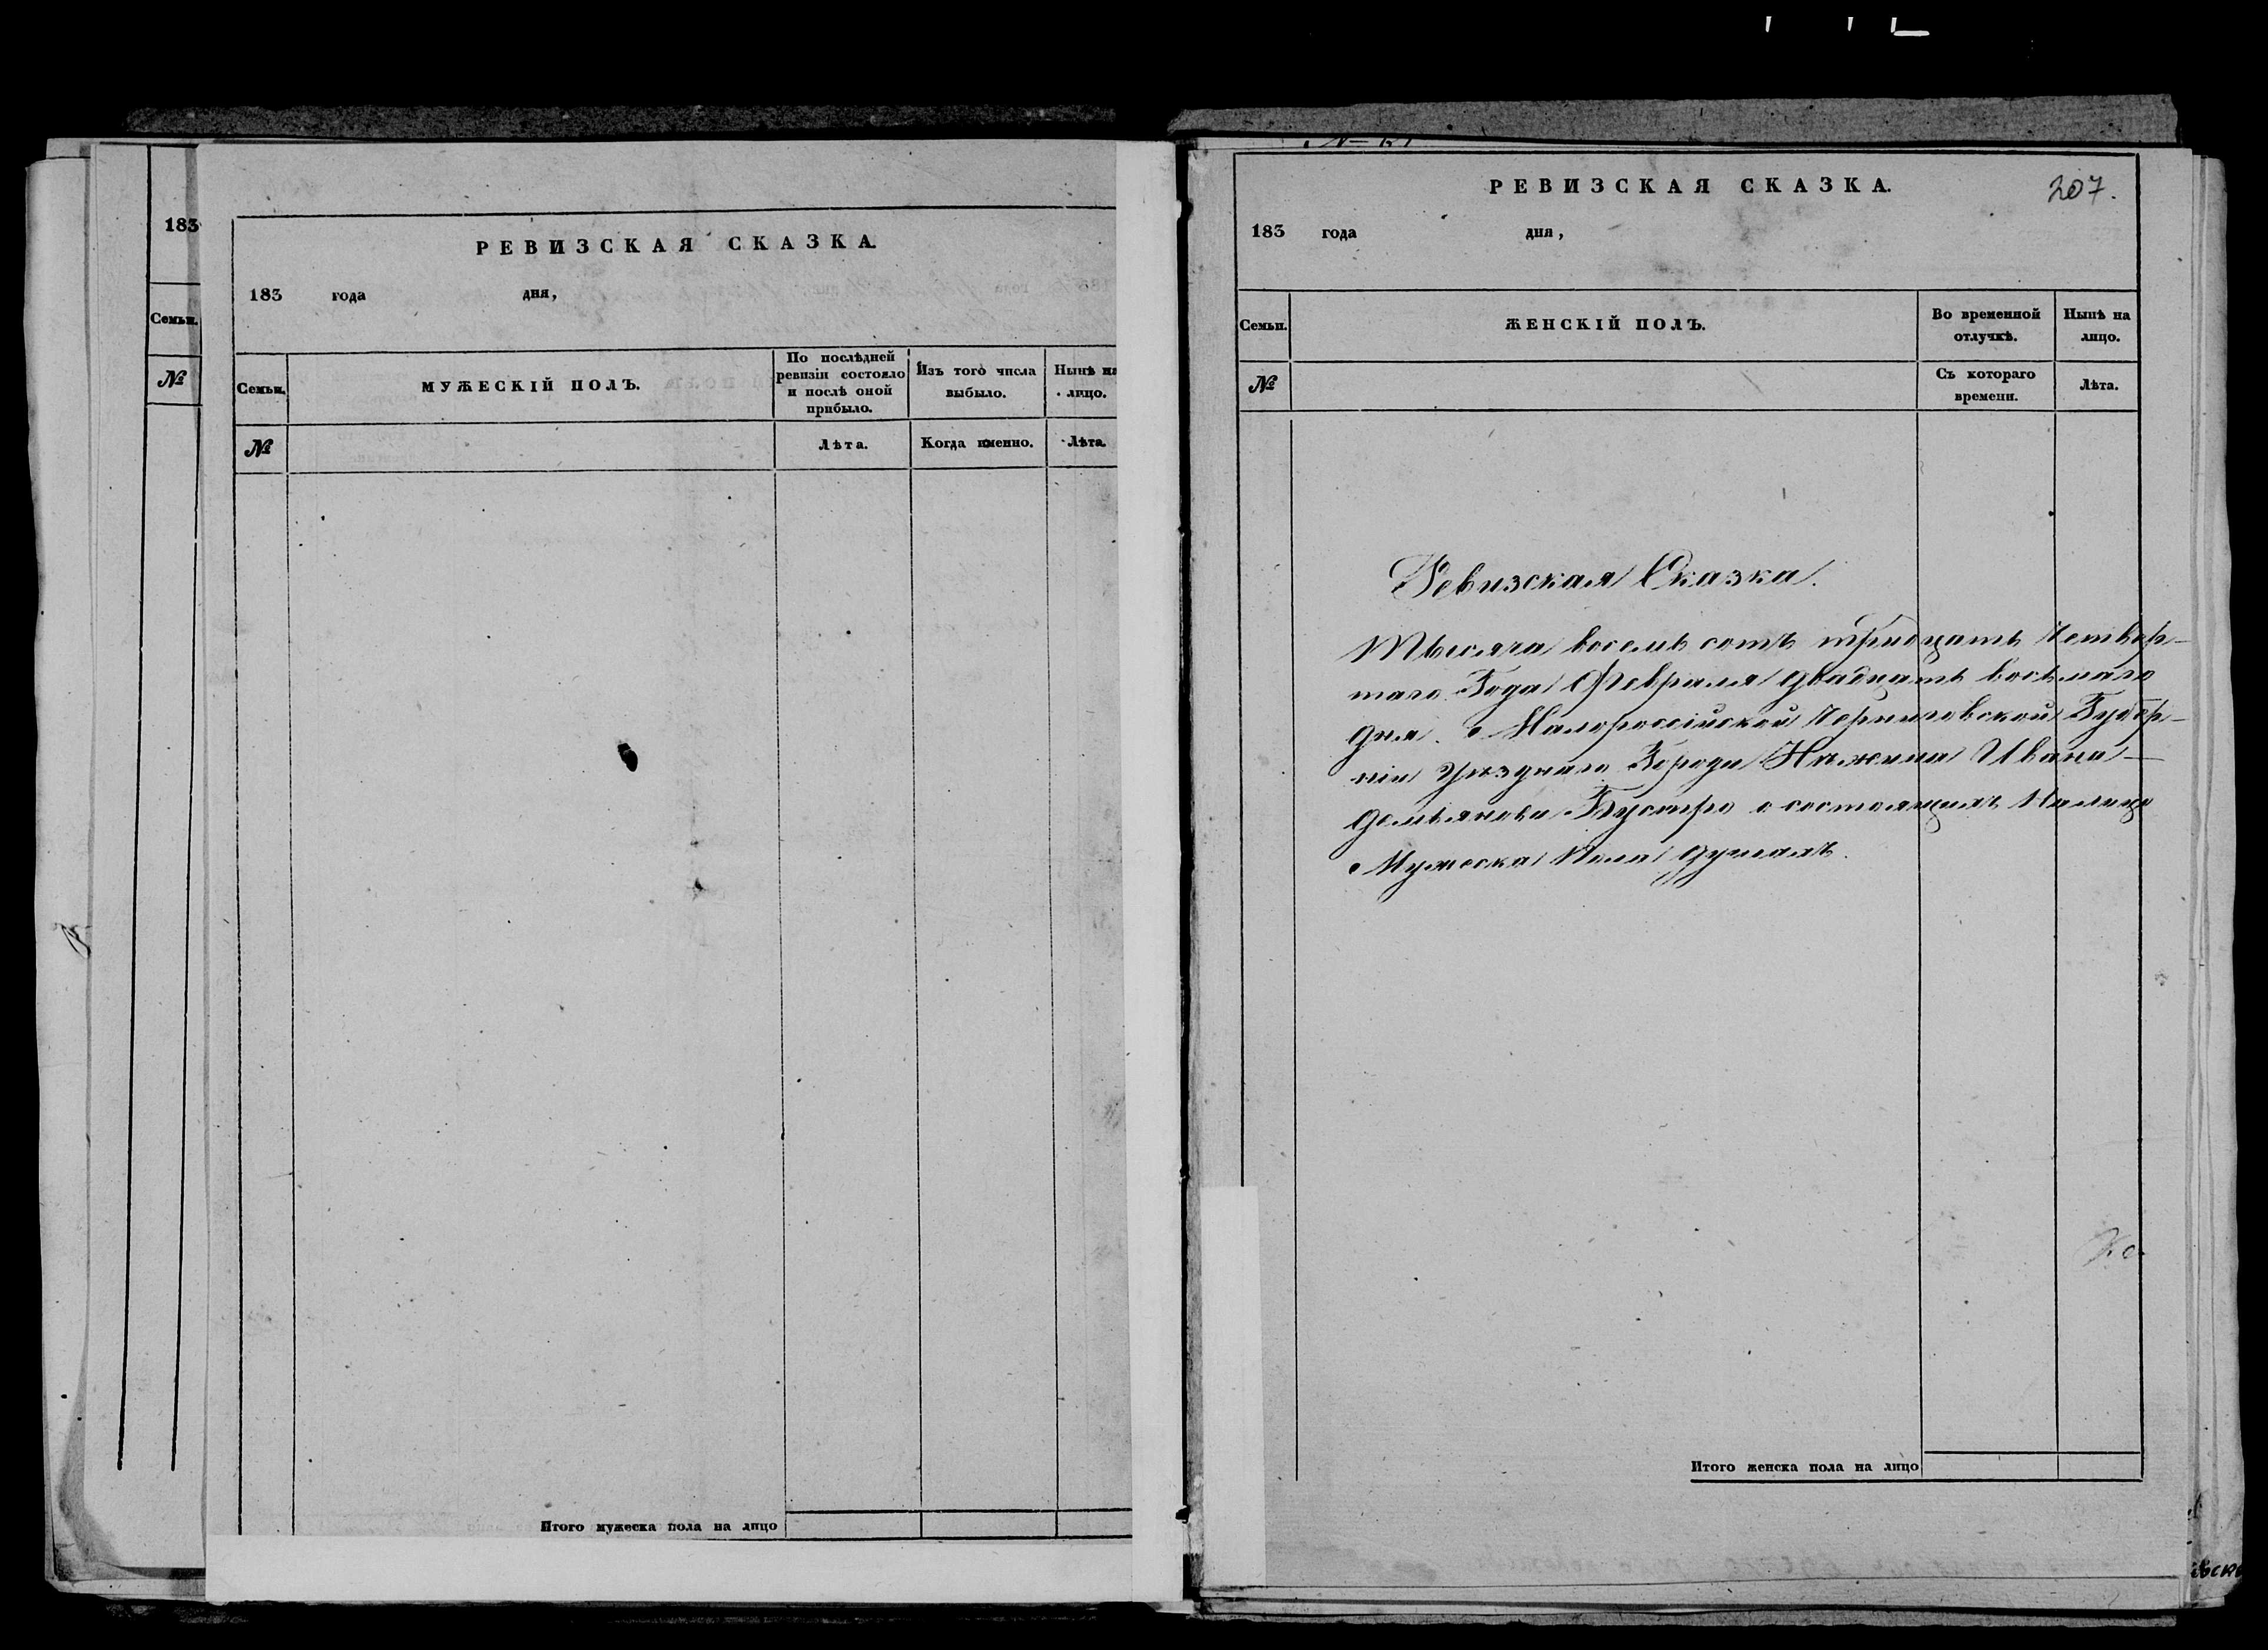 183
Семьи.
№
РЕВИЗСКАЯ СКАЗКА.
183 года дня,
Семьи.
МУЖЕСКІЙ ПОЛЪ.
По послѣдней ревизіи состояло и послѣ оной прибыло.
Изъ того числа выбыло.
Нынѣ на лицо.
№
Лѣта.
Когда именно.
Лѣта.
Итого мужеска пола на лицо
207.
РЕВИЗСКАЯ СКАЗКА.
183 года дня,
Семьи.
ЖЕНСКІЙ ПОЛЪ.
Во временной отлучкѣ.
Нынѣ на лицо.
№
Съ котораго времени.
Лѣта.
Ревизская Сказка.
Тысяча восемь сотъ тридцать Четвер-
таго Года Февраля двадцать восьмаго
дня. Малороссійской Черниговской Губер-
ніи Уѣзднаго Города Нѣжина Ивана
Демьянова о состоящихъ Налицо
Мужеска Пола душахъ.
Итого женска пола на лицо